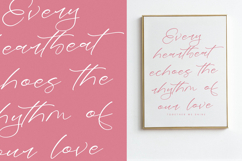 Every
heartbeat
echoes the
rhythm of
our love
Every
heartbeat
echoes the
rhythm of
our love